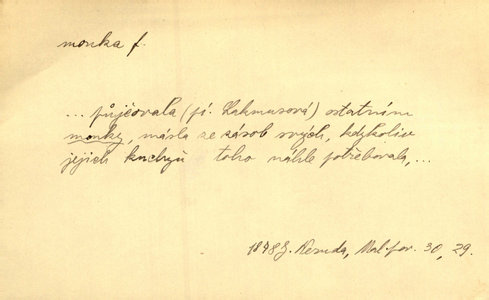 monka f.
... půjčovala (pí. Lakmusová) ostatním
monky, másla ze zásob svých, kdykoliv
jejich kuchyň toho náhle potřebovala, ...
1878 J. Neruda, Mal. pov. 30, 29.